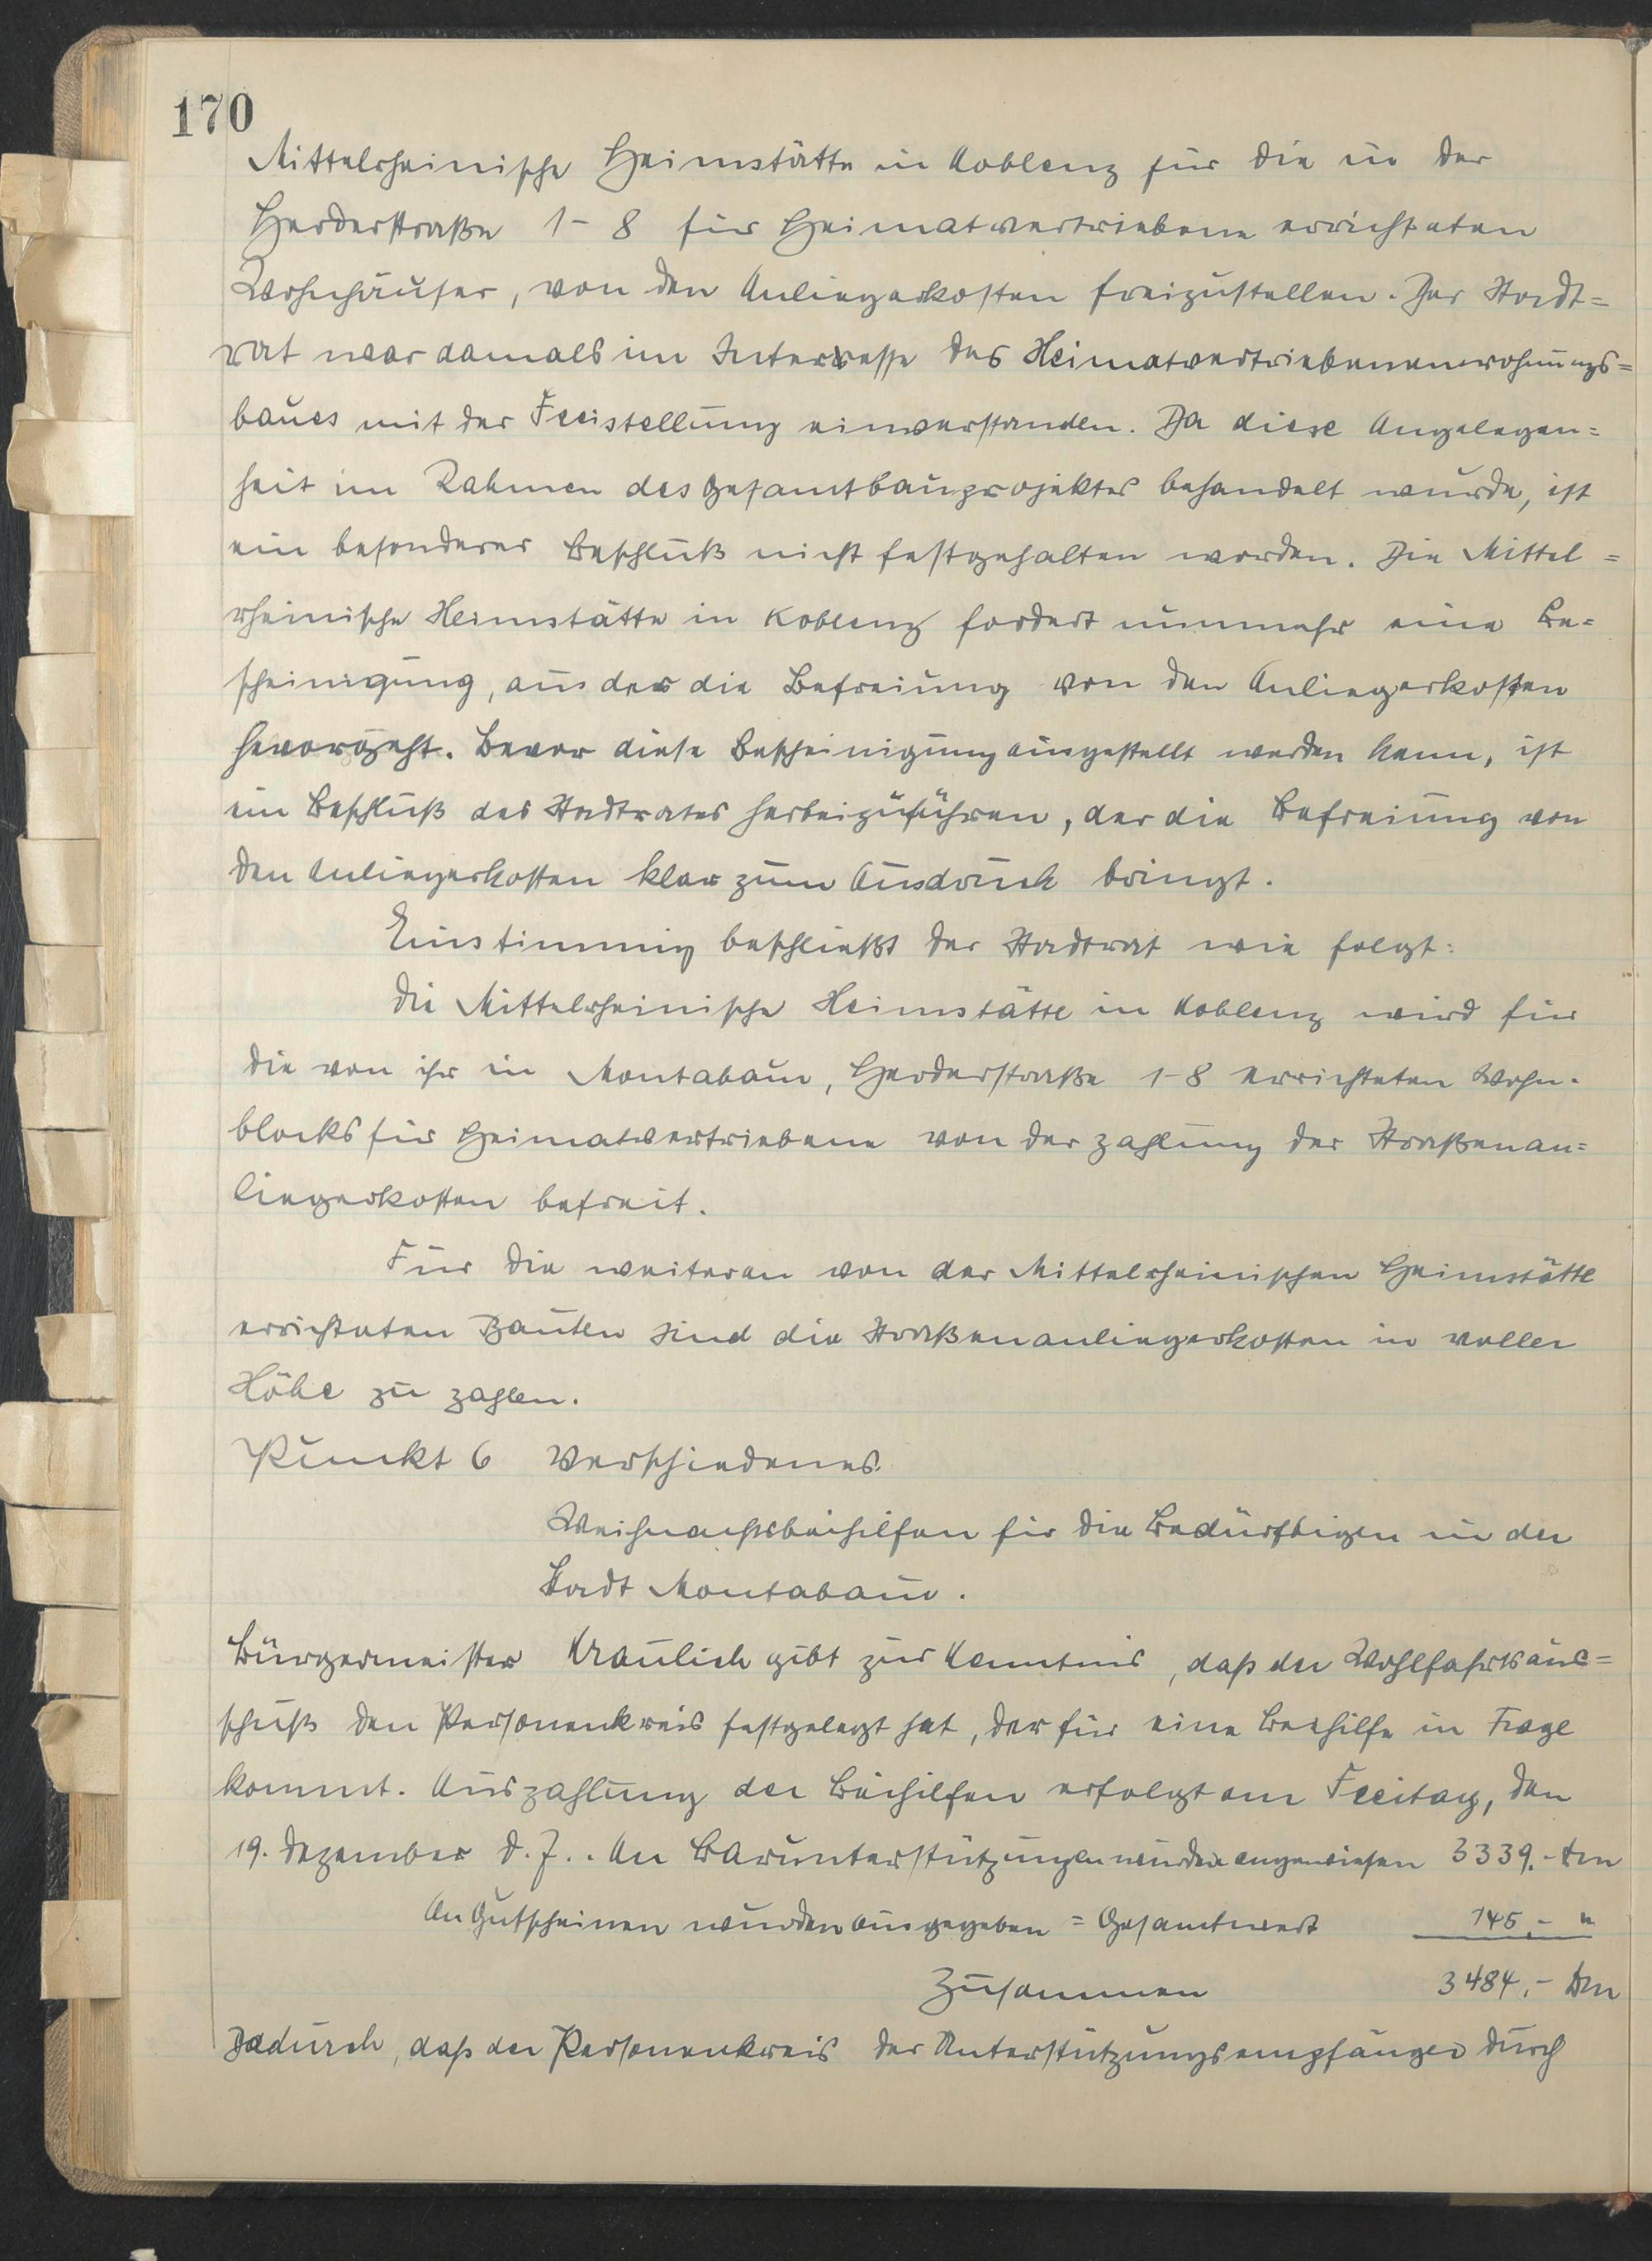 170
Mittelrheinische Heimstätte in Koblenz für die in der
Herderstraße 1-8 für Heimatvertriebene errichteten
Wohnhäuser, von den Anliegerkosten freizustellen. Der Stadt=
rat war damals im Interesse des Heimatvertriebenenwohnungs=
baues mit der Freistellung einverstanden. Da diese Angelegen=
heit im Rahmen des Gesamtbauprojektes behandelt wurde, ist
ein besonderer Beschluß nicht festgehalten worden. Die Mittel=
rheinische Heimstätte in Koblenz fordert nunmehr eine Be=
scheinigung, aus der die Befreiung von den Anliegerkosten
hervorgeht. Bevor diese Bescheinigung ausgestellt werden kann, ist
ein Beschluß des Stadtrates herbeizuführen, der die Befreiung von
den Anliegerkosten klar zum Ausdruck bringt.
Einstimmig beschließt der Stadtrat wie folgt:
Die Mittelrheinische Heimstätte in Koblenz wird für
die von ihr in Montabaur, Herderstraße 1-8 errichteten Wohn-
blocks für Heimatvertriebene von der Zahlung der Straßenan=
liegerkosten befreit.
Für die weiteren von der Mittelrheinischen Heimstätte
errichteten Bauten sind die Straßenanliegerkosten in voller
Höhe zu zahlen.
Punkt 6 Verschiedenes.
Weihnachtsbeihilfen für die Bedürftigen in der
Stadt Montabaur.
Bürgermeister Kraulich gibt zur Kenntnis, daß der Wohlfahrtsaus=
schuß den Personenkreis festgelegt hat, der für eine Beihilfe in Frage
kommt. Auszahlung der Beihilfen erfolgt am Freitag, den
19. Dezember d. J.. An Barunterstützungen wurden angewiesen 3339.- Dm
An Gutscheinen wurden ausgegeben = Gesamtwert 145,- "
Zusammen 3484,- Dm
Dadurch, daß der Personenkreis der Unterstützungsempfänger durch